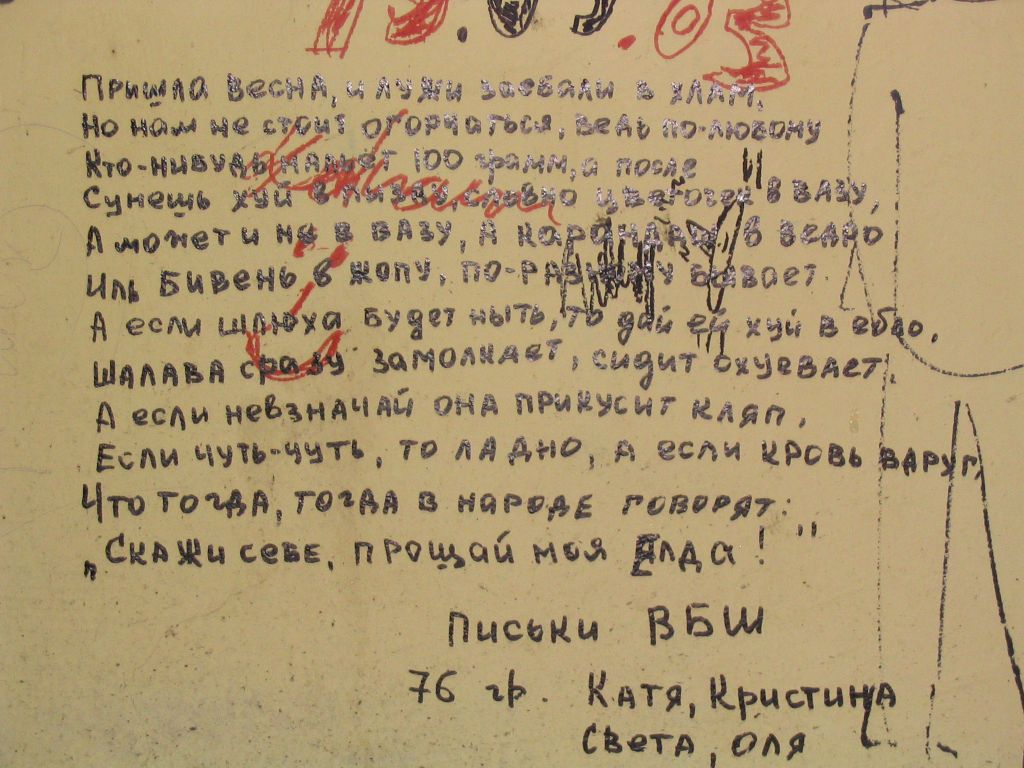 Пришла весна, и лужи заебали в хлам,
Но нам не стоит огорчаться, ведь по-любому
Кто-нибудь нальёт 100 грамм, а после
Сунешь хуй в пизду, словно цветочек в вазу,
А может и не в вазу, а карандаш в ведро
Иль бивень в жопу, по-разному бывает.
А если шлюха будет ныть, то дай ей хуй в ебло,
Шалава сразу замолкает, сидит охуевает.
А если невзначай она прикусит кляп,
Если чуть-чуть, то ладно, а если кровь вдруг,
Что тогда, тогда в народе говорят:
„Скажи себе, прощай моя Елда!"
Письки ВБШ
76 гр. Катя, Кристина
Света, Оля